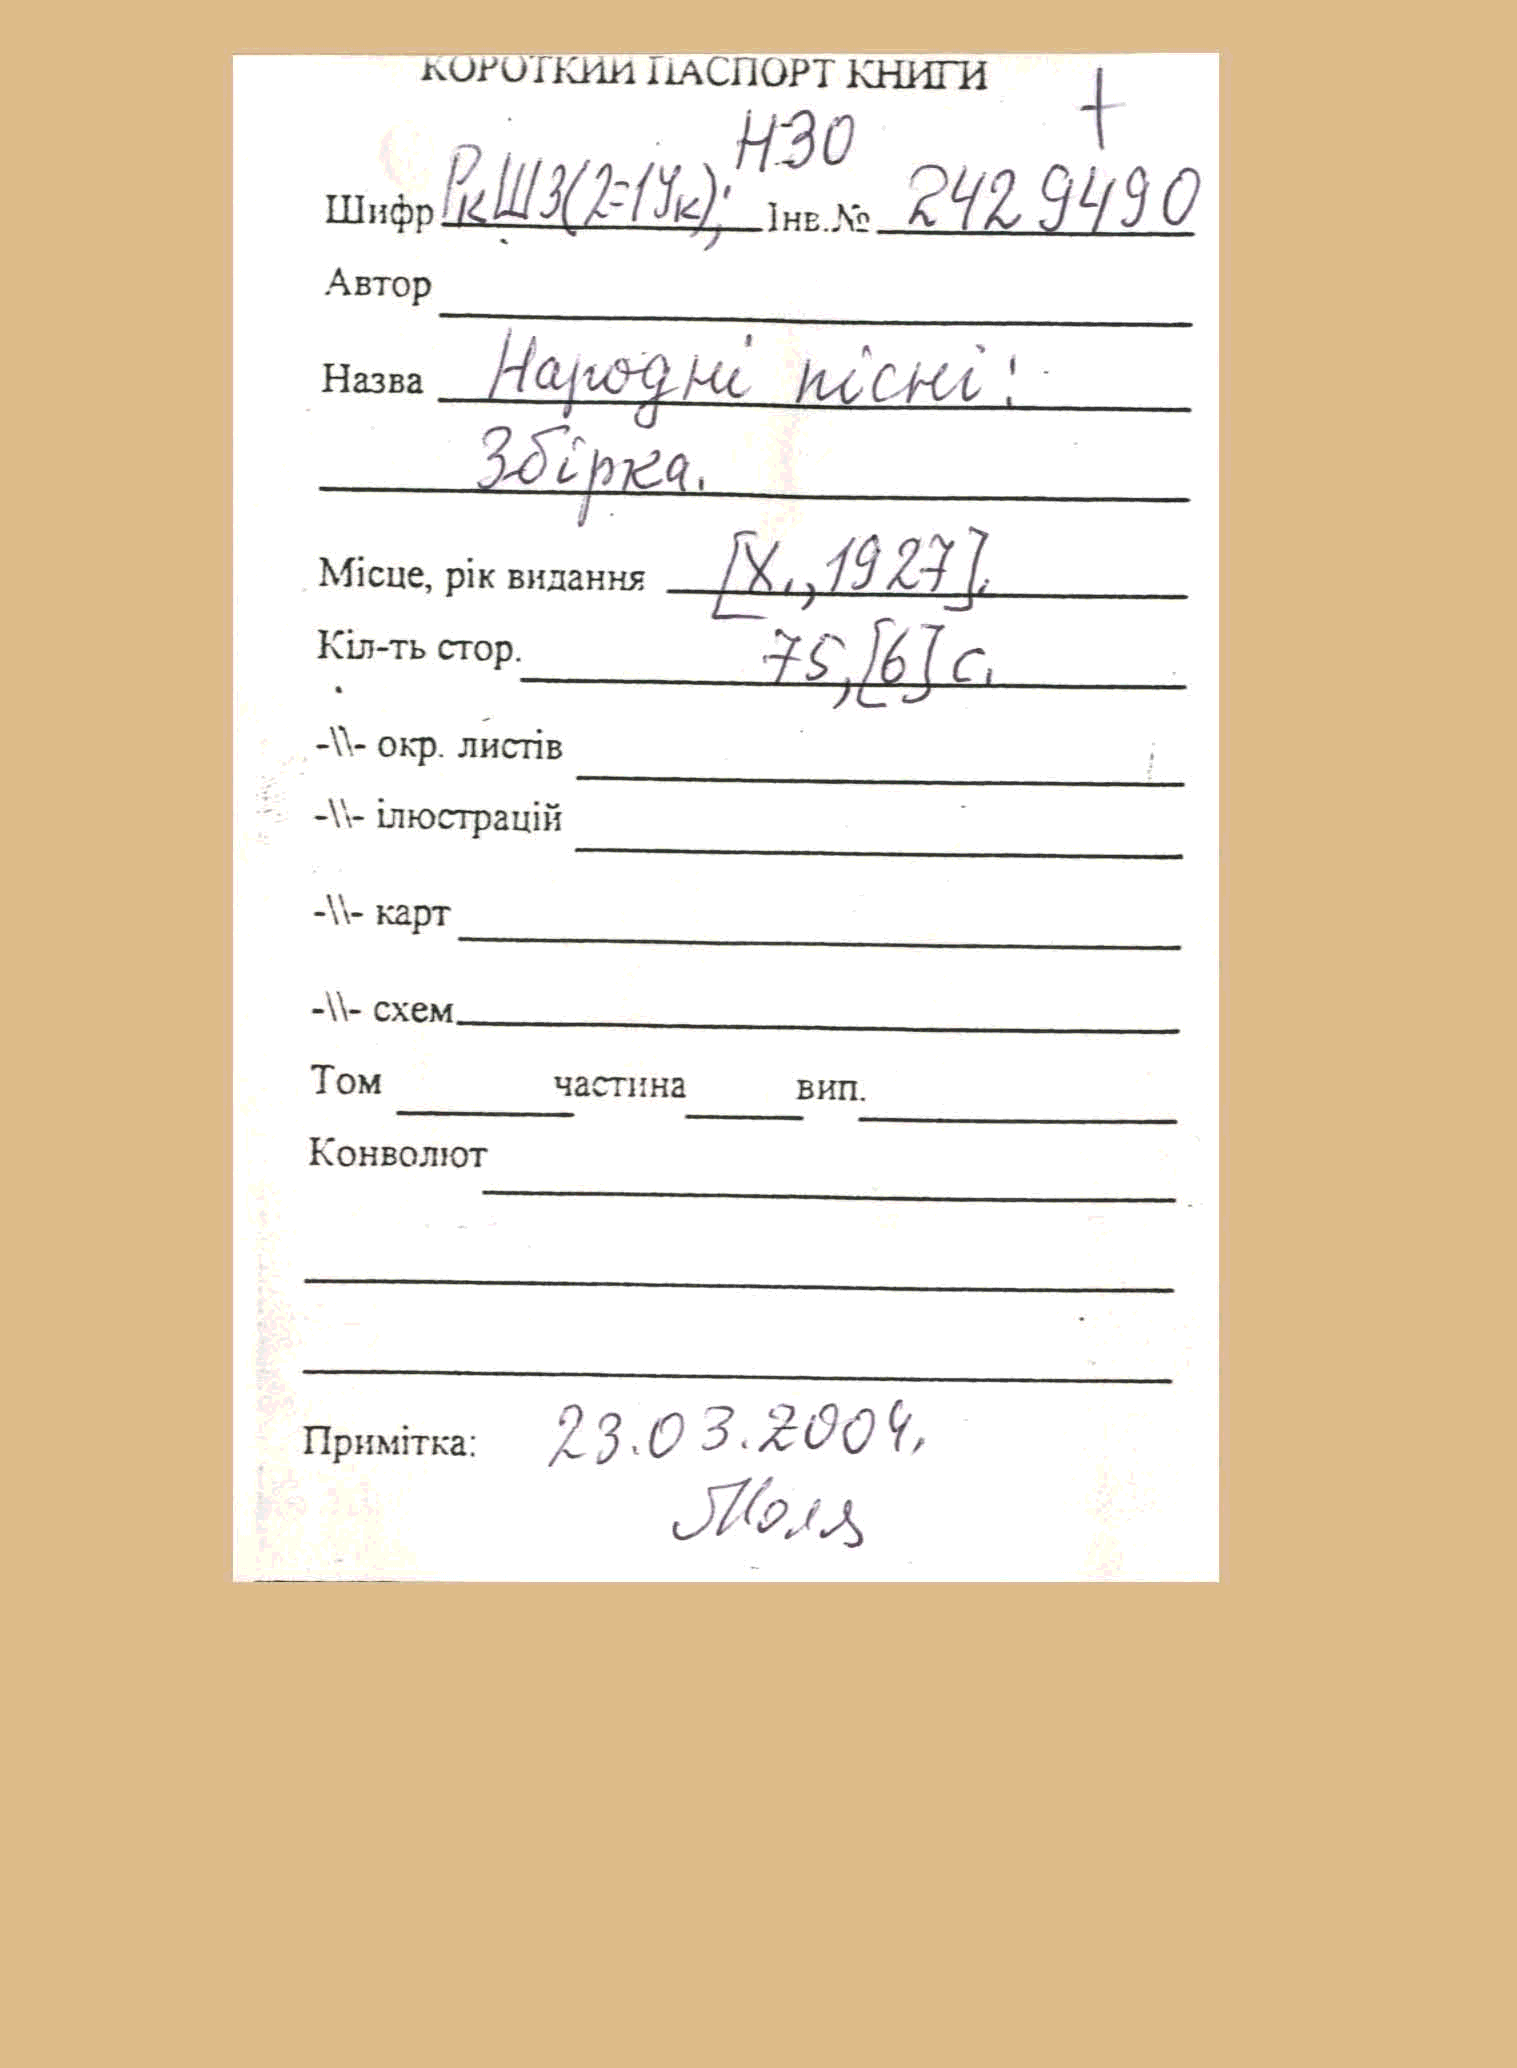 КОРОТКИЙ ПАСПОРТ КНИГИ
+
Н30
Шифр РкШ3(2=1Ук); Інв.№ 2429490
Автор
Назва Народні пісні:
Збірка.
Місце, рік видання [Х., 1927].
Кіл-ть стор. 75, [6] с.
-\\- окр. листів
-\\- ілюстрацій
-\\- карт
-\\- схем
Том частина вип.
Конволют
Примітка: 23.03.2004.